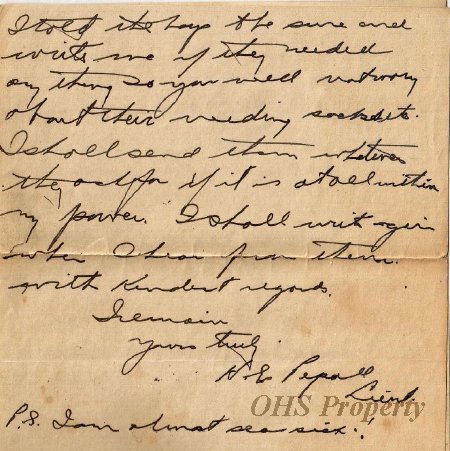 I told the boys to be sure and
write me if they needed
any thing so you need not worry
about their needing socks etc.
I shall send them whatever
they ask for if it is at all within
my power. I shall write again
when I hear from them.
with Kindest regards.
I remain
Yours truly
H. E. Pepall
Lieut.
OHS Property
P.S. I am almost sea sick!